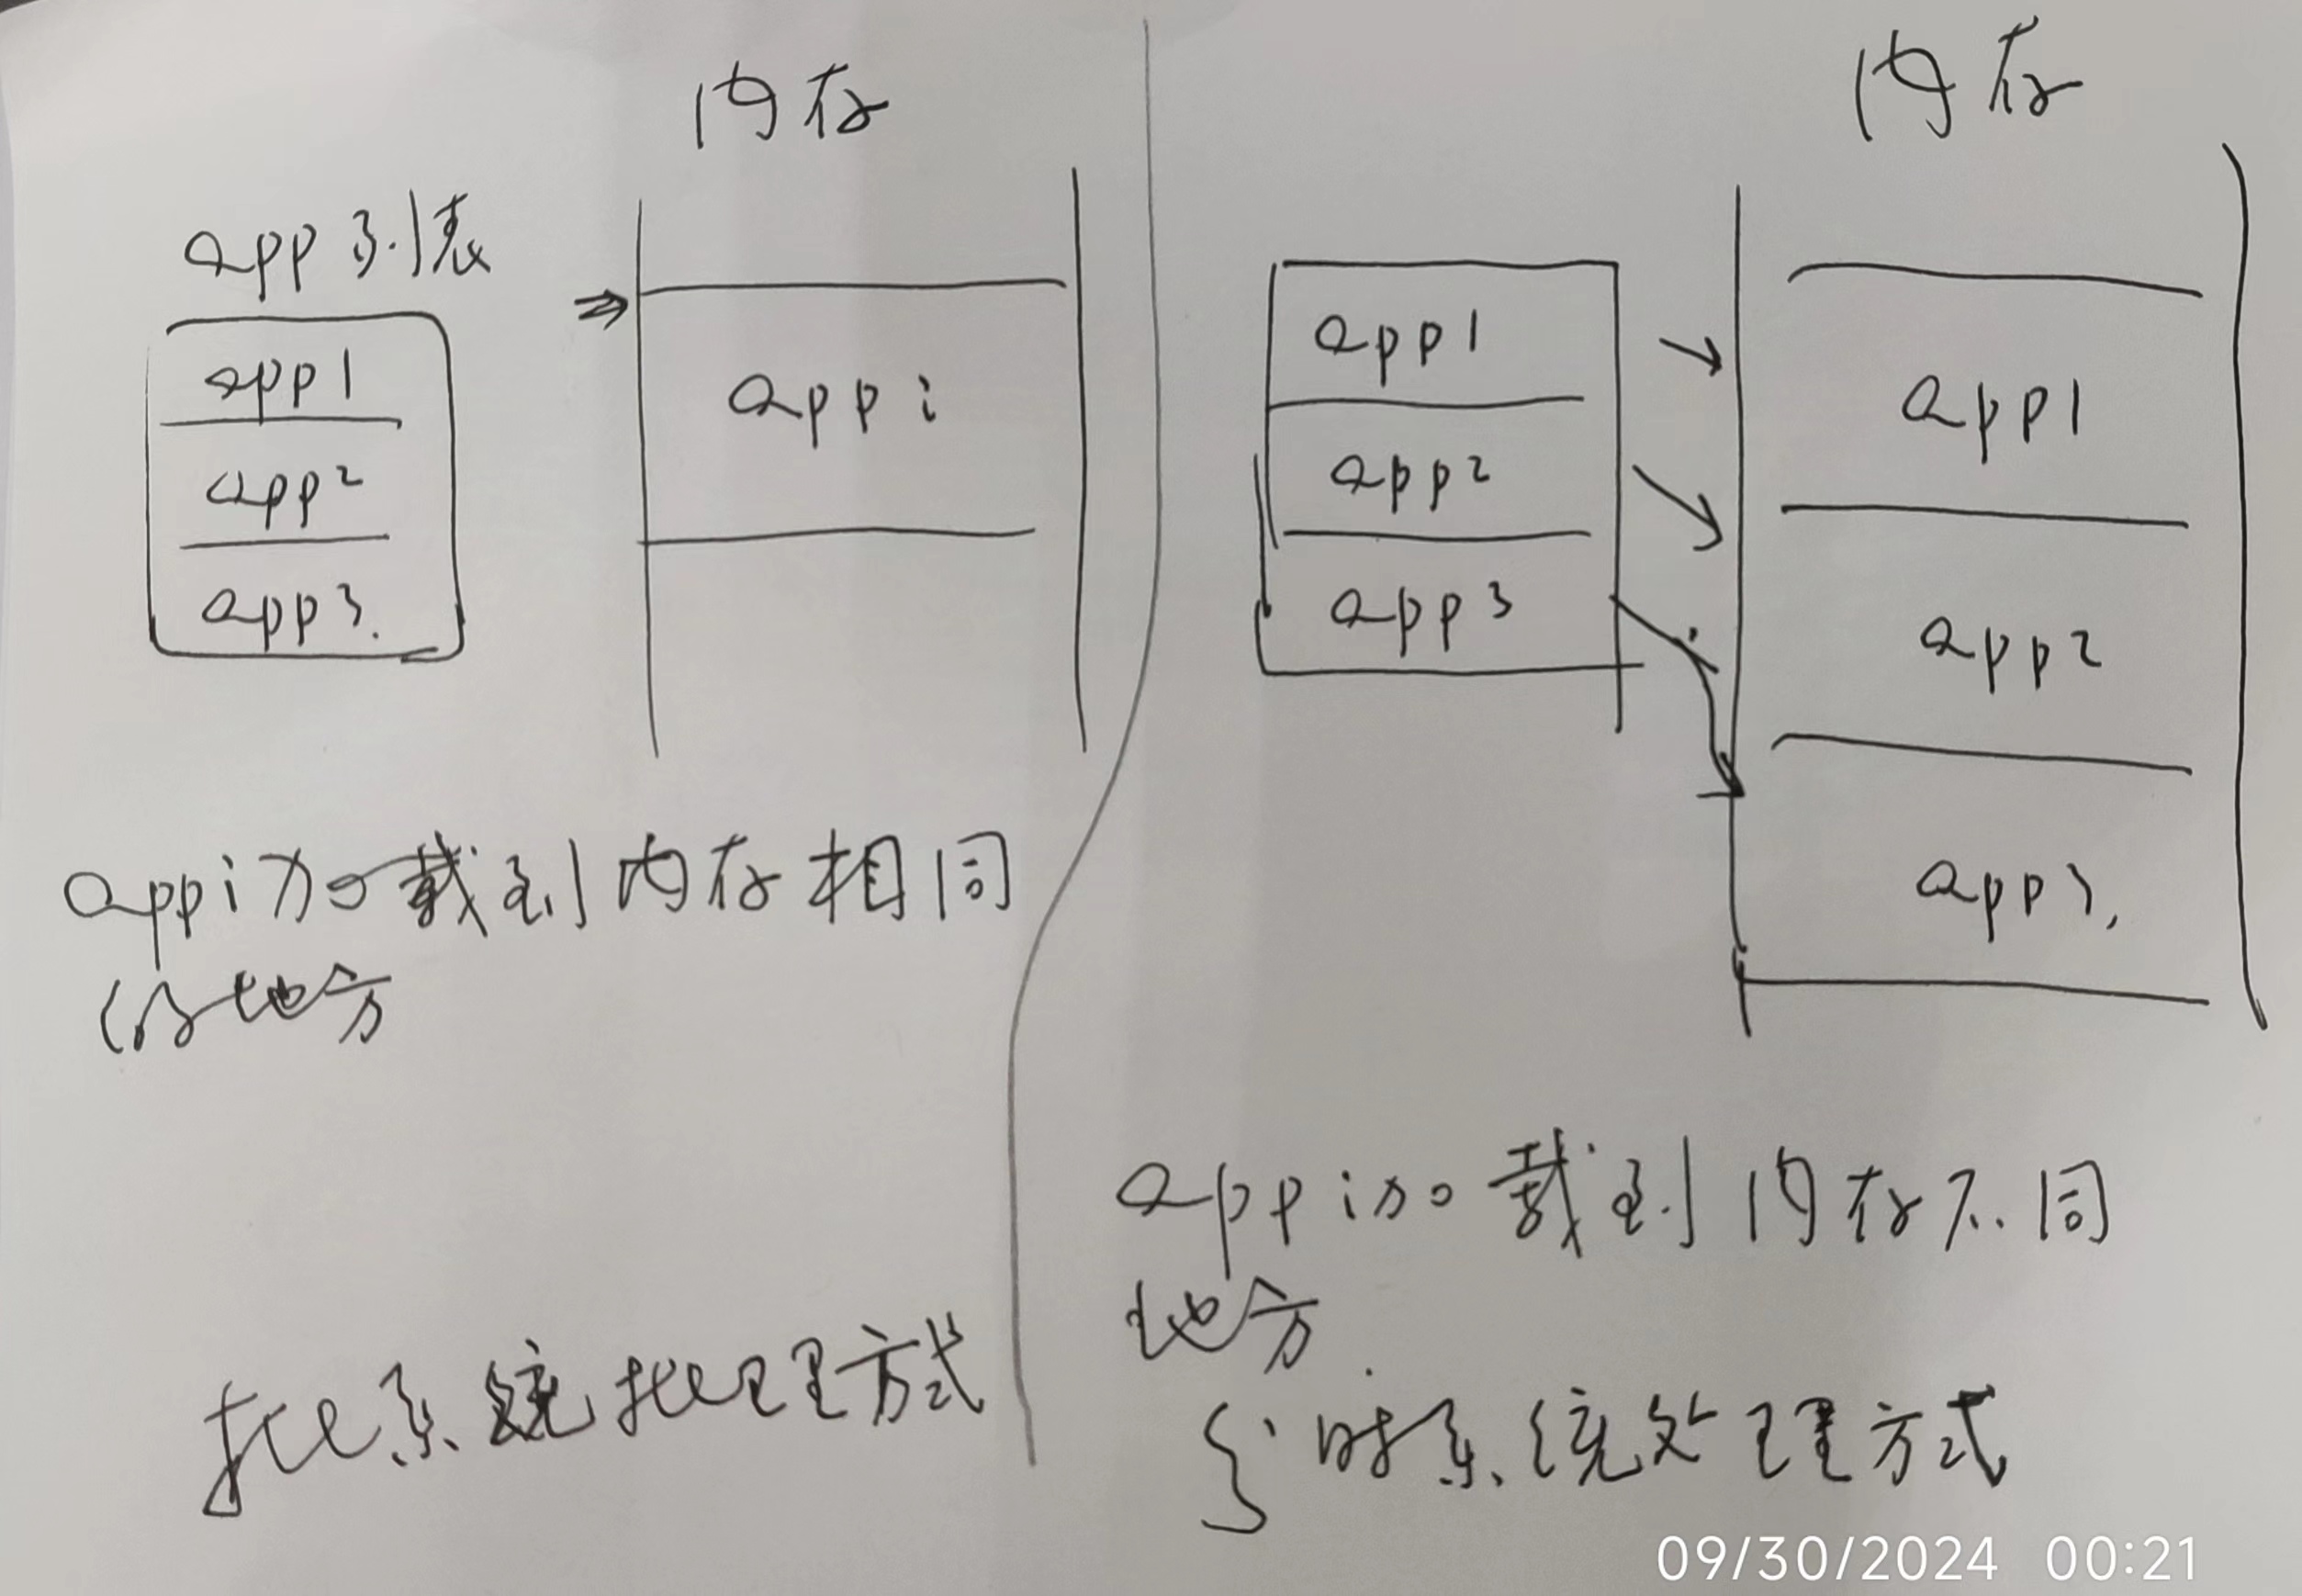 内存
app列表
app1
app2
app3.
appi
appi加载到内存相同
的地方
批系统批理方式
内存
app1
app2
app3
app1
app2
app3.
appi加载到内存不同
地方.
分时系统处理方式
09/30/2024 00:21